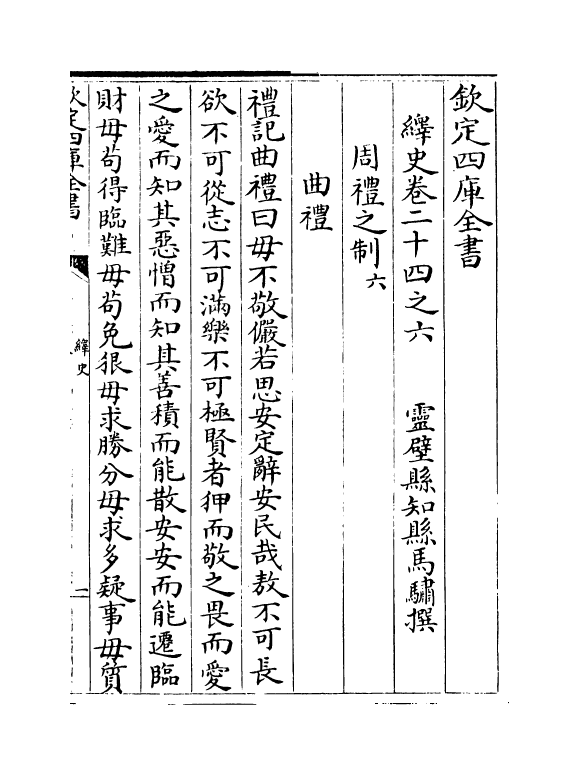 欽定四庫全書
繹史卷二十四之六　靈壁縣知縣馬驌撰
周禮之制六
曲禮
禮記曲禮曰毋不敬儼若思安定辭安民哉敖不可長
欲不可從志不可滿樂不可極賢者狎而敬之畏而愛
之愛而知其惡憎而知其善積而能散安安而能遷臨
財毋茍得臨難毋茍免狠毋求勝分毋求多疑事毋質
欽定四庫全書
繹史
一